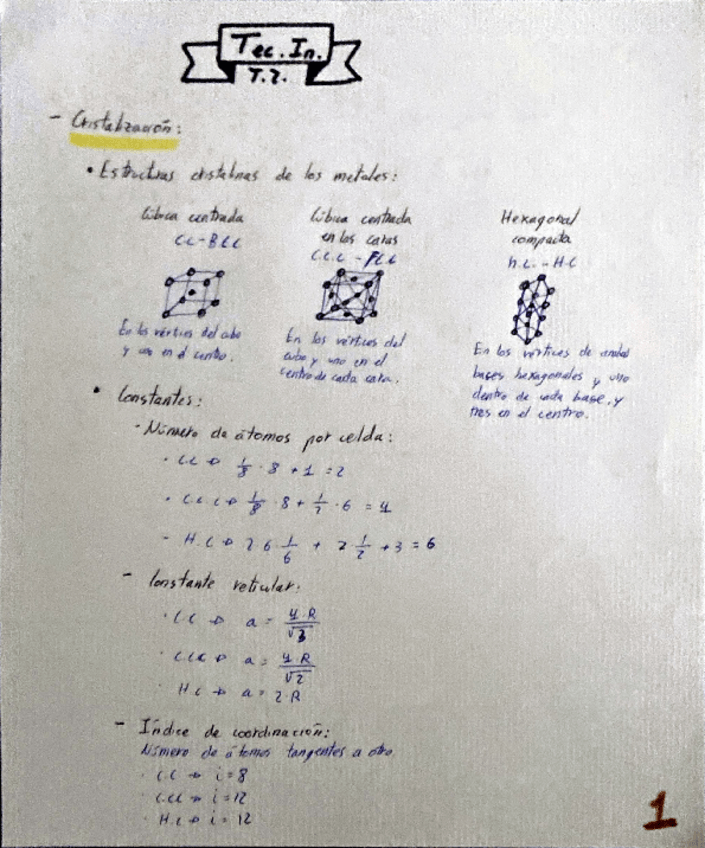 Tec. In.
T.2.
- Cristalización:
• Estructuras cristalinas de los metales:
Cúbica centrada
CC-BCC
En los vértices del cubo
y uno en el centro.
Cúbica centrada
en las caras
C.C.C - FCC
En los vértices del
cubo y uno en el
centro de cada cara.
Hexagonal
compacta
h.C. - H.C
En los vértices de ambas
bases hexagonales y uno
dentro de cada base, y
tres en el centro.
• Constantes:
- Número de átomos por celda:
· CC → 1/8 · 8 + 1 = 2
· C.C.C → 1/8 · 8 + 1/2 · 6 = 4
- H.C → 2 6 · 1/6 + 2 1/2 + 3 = 6
- Constante reticular:
· CC → a = 4·R/√3
· CCC → a = 4·R/√2
· H.C → a = 2·R
- Índice de coordinación:
Número de átomos tangentes a otro
· CC → i = 8
· C.CC → i = 12
· H.C → i = 12
1